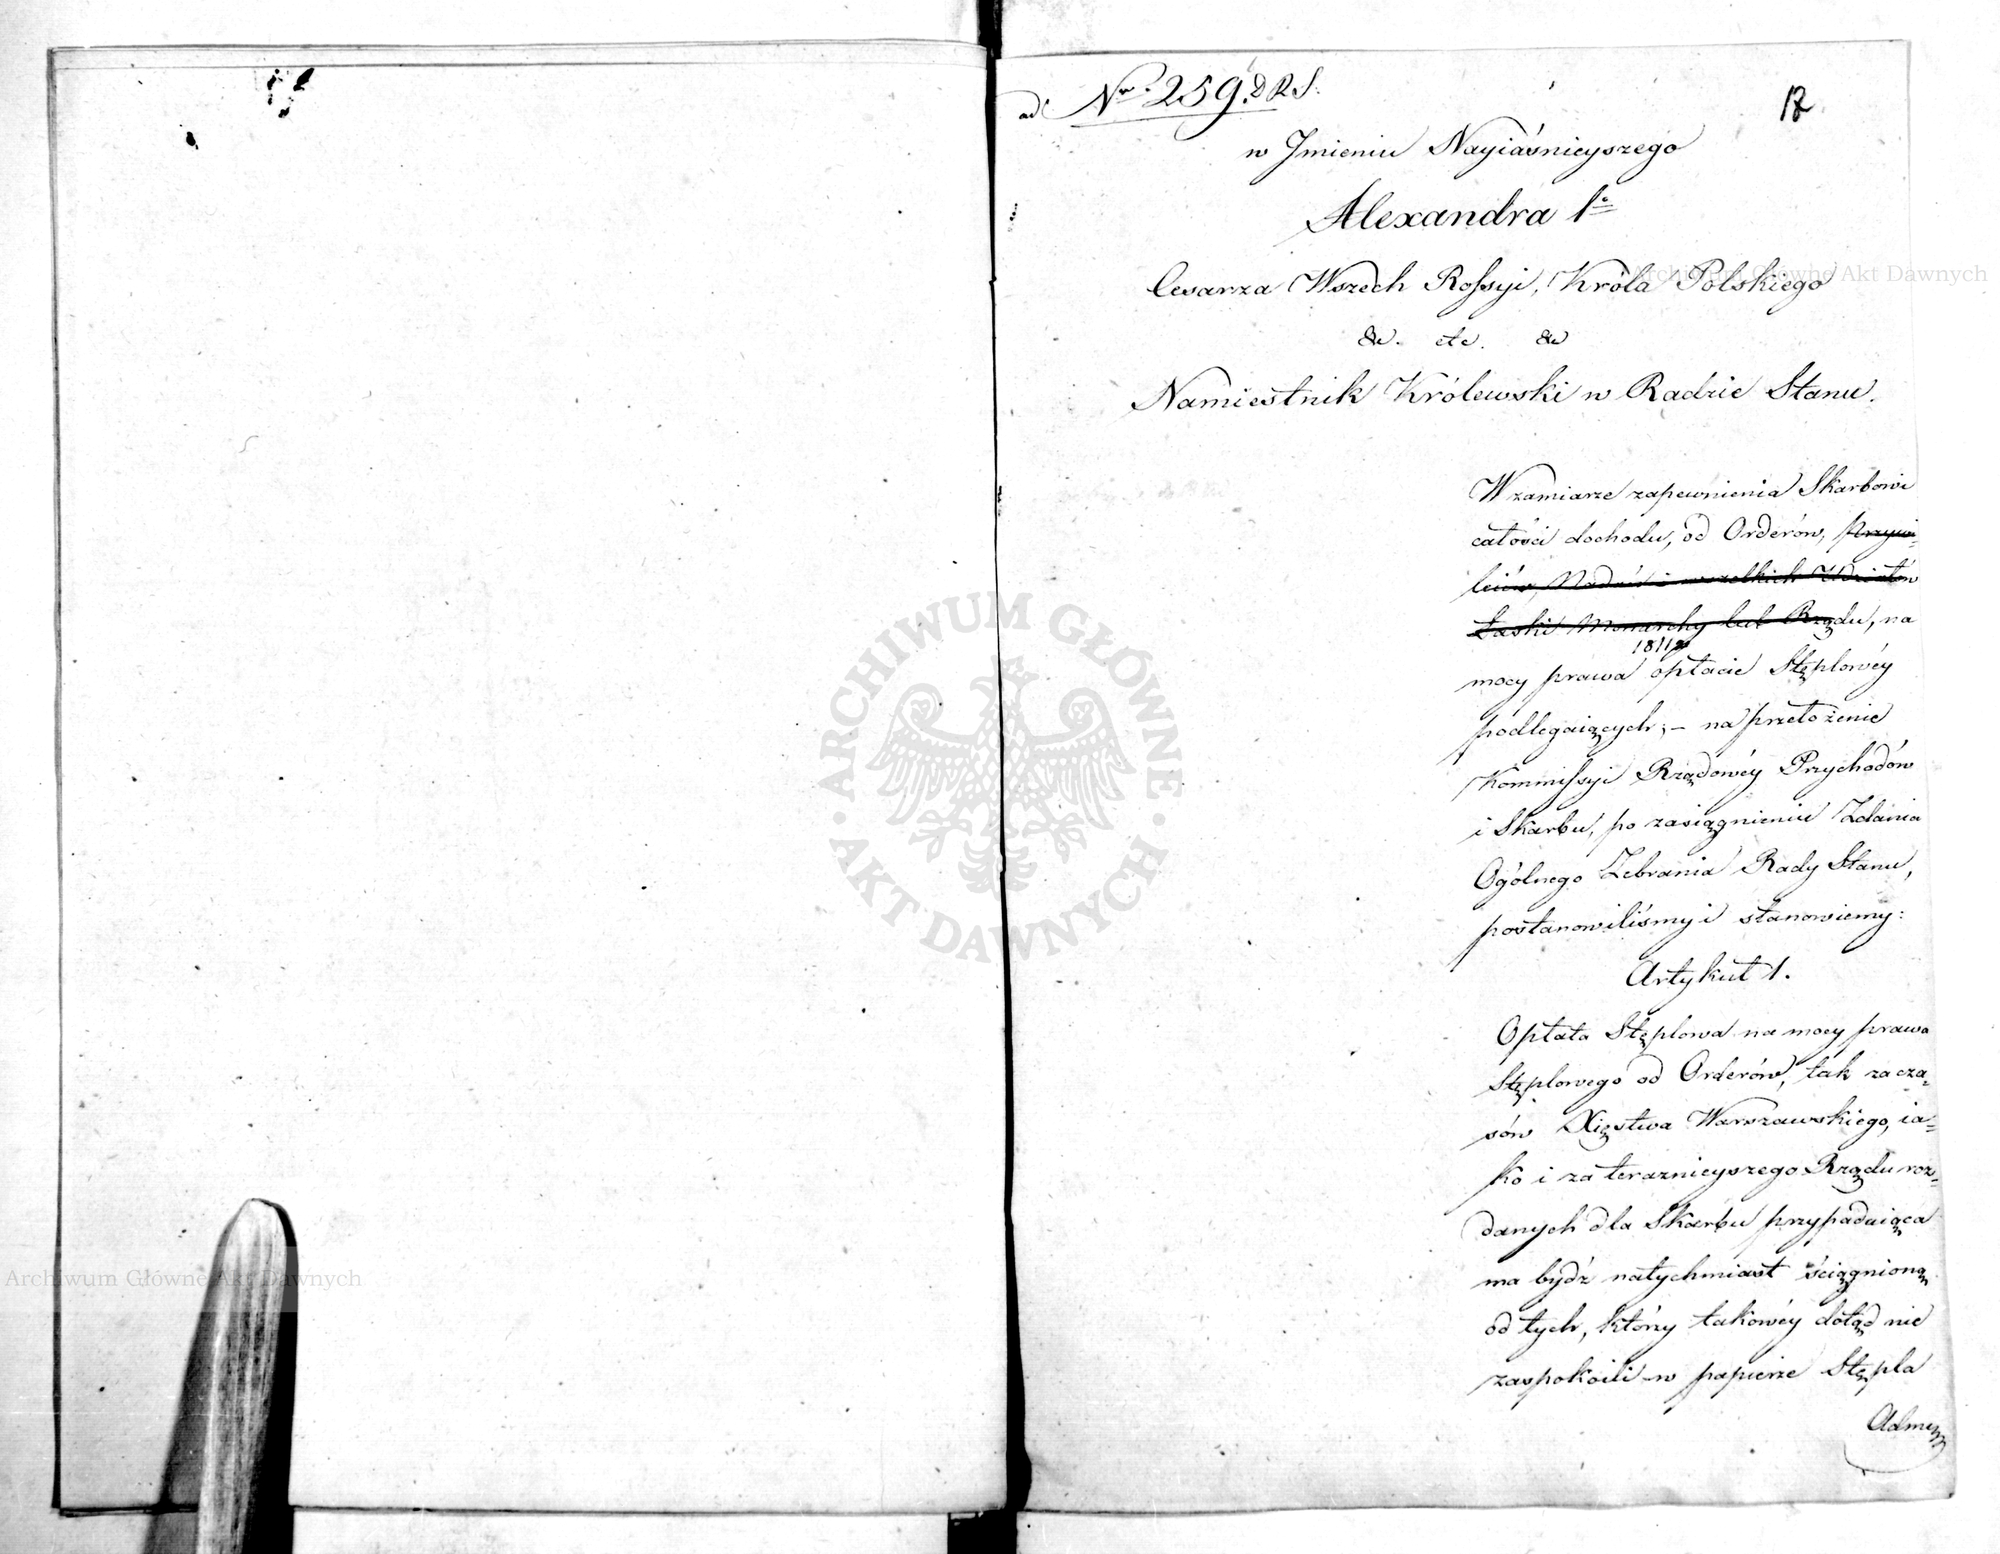 ad Nr. 259. D R S.
17.
w Jmieniu Nayiaśnieyszego
Alexandra 1o
Cesarza Wszech Rossyi, Króla Polskiego
&c. etc. &c
Namiestnik Królewski w Radzie Stanu.
W zamiarze zapewnienia Skarbowi
całości dochodu, od Orderów, Przywi=
leiów, Nadań i wszelkich Udziałów
Łaski Monarchy lub Rządu, na
mocy prawa 1811 opłacie Stęplowéy
podlegaiących; – na przełożenie
Kommissyi Rządowéy Przychodów
i Skarbu, po zasiągnieniu Zdania
Ogólnego Zebrania Rady Stanu,
postanowiliśmy i stanowiemy:
Artykuł 1.
Opłata Stęplowa na mocy prawa
Stęplowego od Orderów, tak za cza=
sów Xięstwa Warszawskiego, ia=
ko i za teraznieyszego Rządu roz=
danych dla Skarbu przypadaiąca
ma bydź natychmiast ściągnioną
od tych, którzy takowéy dotąd nie
zaspokoili w papierze Stępla
Archiwum Główne Akt Dawnych
ARCHIWUM GŁÓWNE
AKT DAWNYCH
Archiwum Główne Akt Dawnych